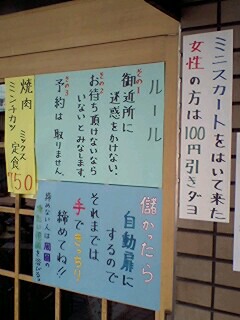 ミニスカートをはいて来た
女性の方は100円引きダヨ
ルール
その1
御近所に
迷惑をかけない。
その2
お待ち頂けないなら
いないとみなします。
その3
予約は取りません。
焼肉
ミックス
ミンチカツ
定食
750
儲かったら
自動扉に
するので
それまでは
手できっちり
締めてね!!
締めない人は周囲の